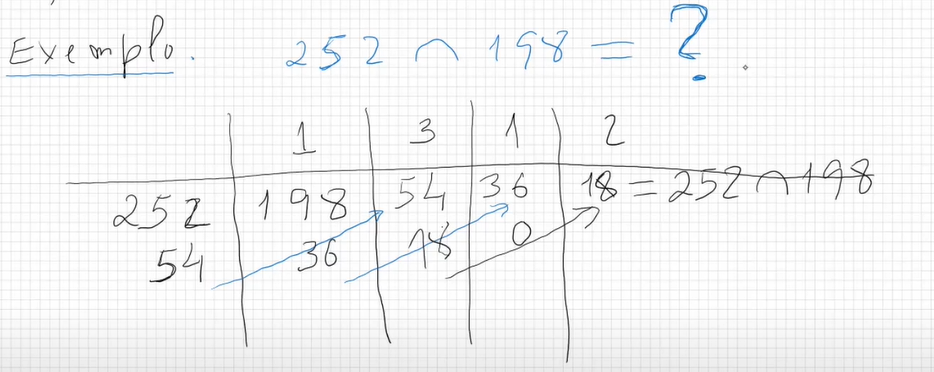 Exemplo. 252 ∩ 198 = ?
1 3 1 2
252 198 54 36 18 = 252 ∩ 198
54 36 18 0